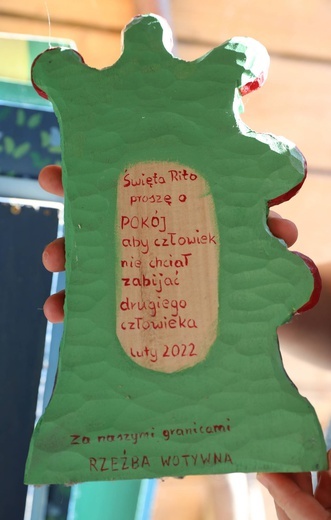 Święta Rito
proszę o
POKÓJ
aby człowiek
nie chciał
zabijać
drugiego
człowieka
Luty 2022
za naszymi granicami
RZEŹBA WOTYWNA